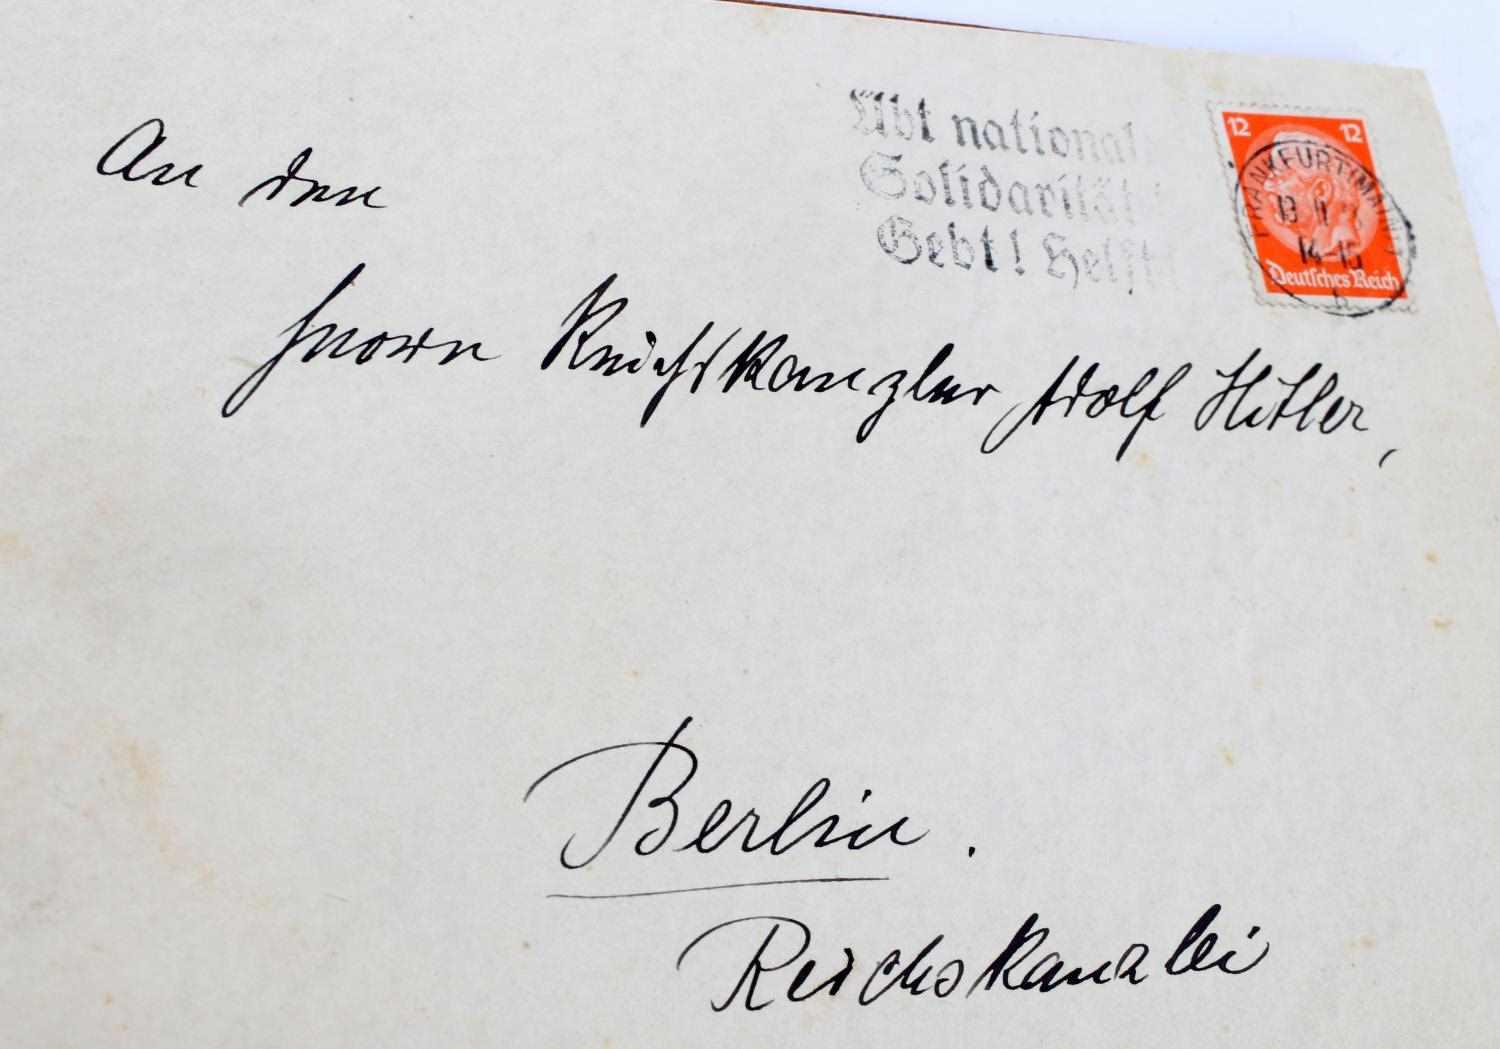 An den
Herrn Reichskanzler Adolf Hitler,
Berlin.
Reichskanzlei
Übt national
Solidarität
Gebt! Helft
12 12
FRANKFURT (MAIN)
14-15
b
Deutsches Reich